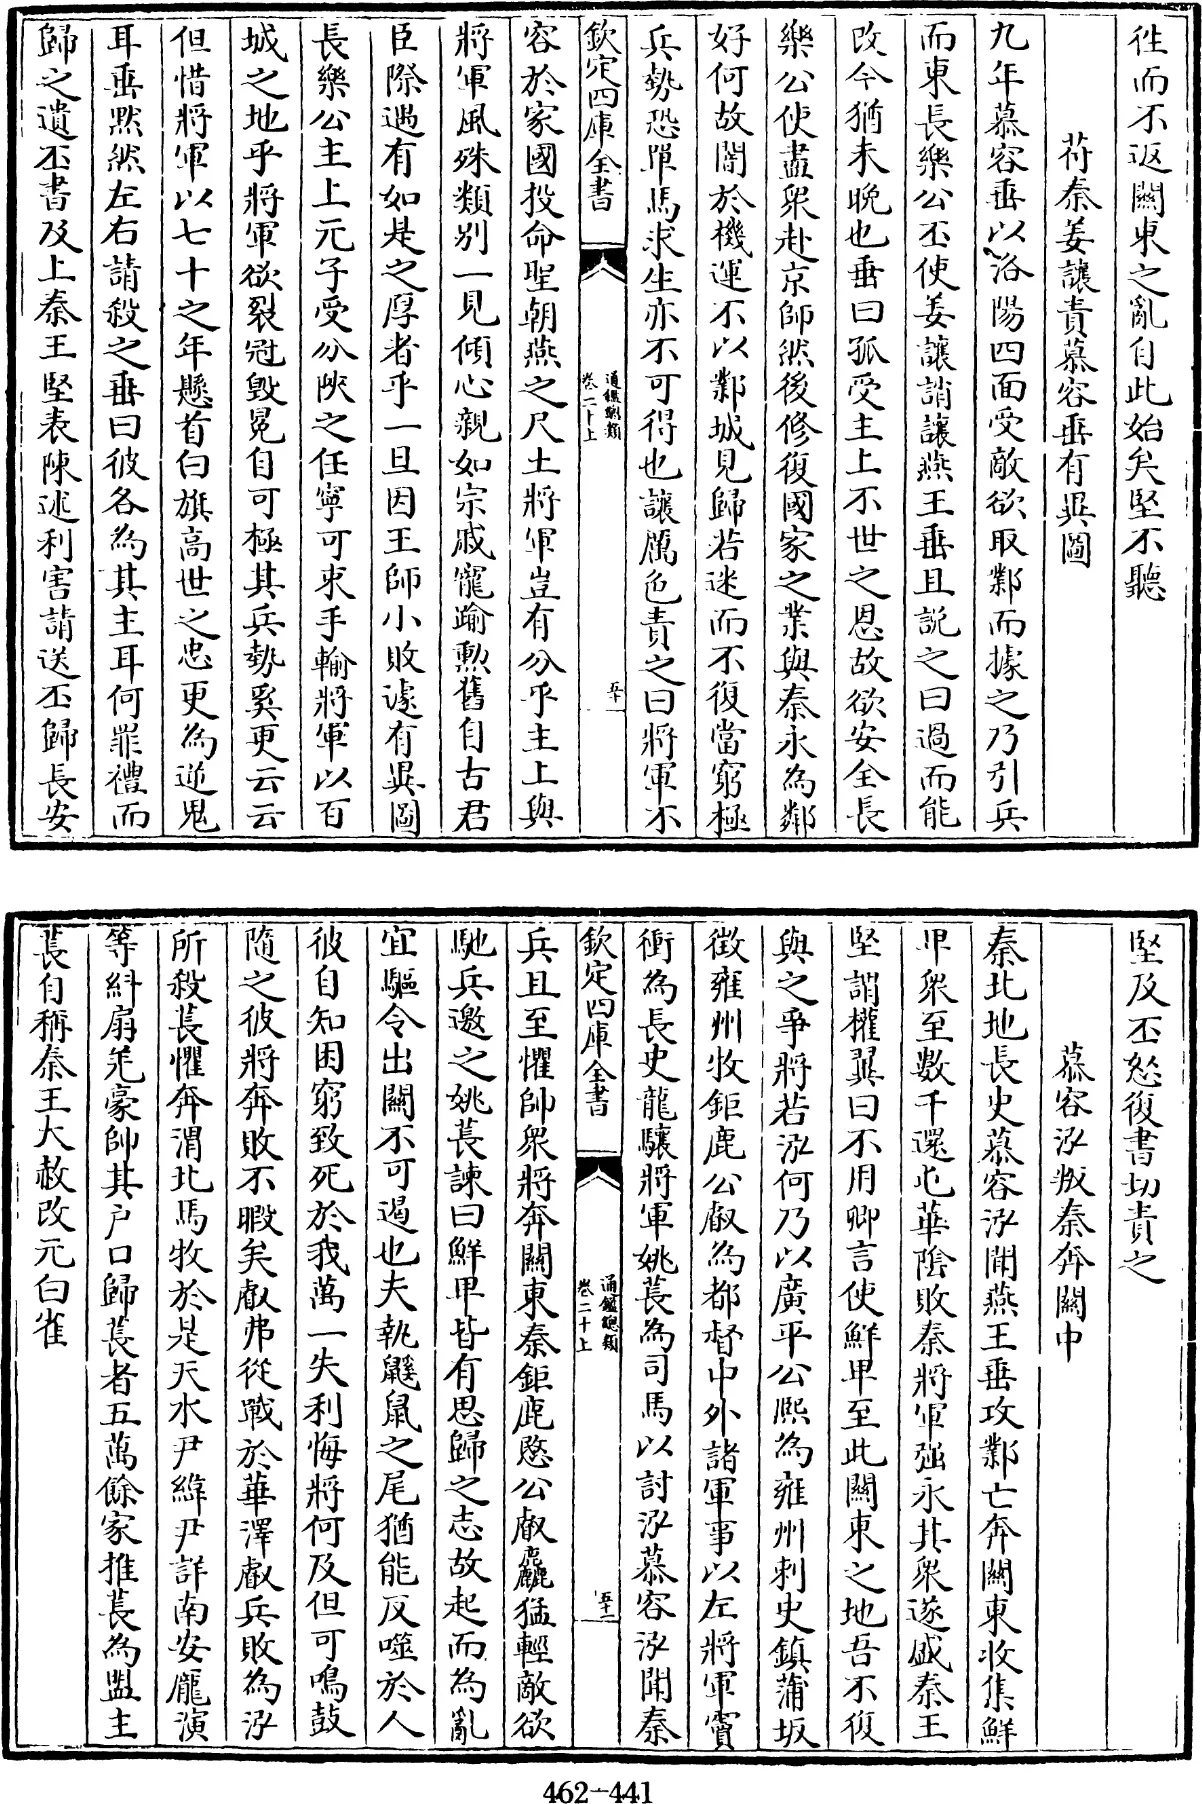 徃而不返關東之亂自此始矣堅不聽
苻秦姜讓責慕容垂有異圖
九年慕容垂以洛陽四面受敵欲取鄴而據之乃引兵
而東長樂公丕使姜讓誚讓燕王垂且説之曰過而能
改今猶未晩也垂曰孤受主上不世之恩故欲安全長
樂公使盡衆赴京師然後修復國家之業與秦永為鄰
好何故闇於機運不以鄴城見歸若迷而不復當窮極
兵勢恐單馬求生亦不可得也讓厲色責之曰將軍不
欽定四庫全書
通鑑總類
卷二十上
五十一
容於家國投命聖朝燕之尺土將軍豈有分乎主上與
將軍風殊類别一見傾心親如宗戚寵踰勲舊自古君
臣際遇有如是之厚者乎一旦因王師小敗遽有異圖
長樂公主上元子受分陜之任寧可束手輸將軍以百
城之地乎將軍欲裂冠毁冕自可極其兵勢奚更云云
但惜將軍以七十之年懸首白旗高世之忠更為逆鬼
耳垂黙然左右請殺之垂曰彼各為其主耳何罪禮而
歸之遺丕書及上秦王堅表陳述利害請送丕歸長安
堅及丕怒復書切責之
慕容泓叛秦奔關中
秦北地長史慕容泓聞燕王垂攻鄴亡奔關東收集鮮
卑衆至數千還屯華陰敗秦將軍强永其衆遂盛秦王
堅謂權翼曰不用卿言使鮮卑至此關東之地吾不復
與之爭將若泓何乃以廣平公熙為雍州刺史鎮蒲坂
徴雍州牧鉅鹿公叡為都督中外諸軍事以左將軍竇
衝為長史龍驤將軍姚萇為司馬以討泓慕容泓聞秦
欽定四庫全書
通鑑總類
卷二十上
五十二
兵且至懼帥衆將奔關東秦鉅鹿愍公叡麤猛輕敵欲
馳兵邀之姚萇諫曰鮮卑皆有思歸之志故起而為亂
宜驅令出關不可遏也夫執鼷鼠之尾猶能反噬於人
彼自知困窮致死於我萬一失利悔將何及但可鳴鼓
隨之彼將奔敗不暇矣叡弗從戰於華澤叡兵敗為泓
所殺萇懼奔渭北馬牧於是天水尹緯尹詳南安龎演
等糾扇羌豪帥其户口歸萇者五萬餘家推萇為盟主
萇自稱秦王大赦改元白雀
462-441